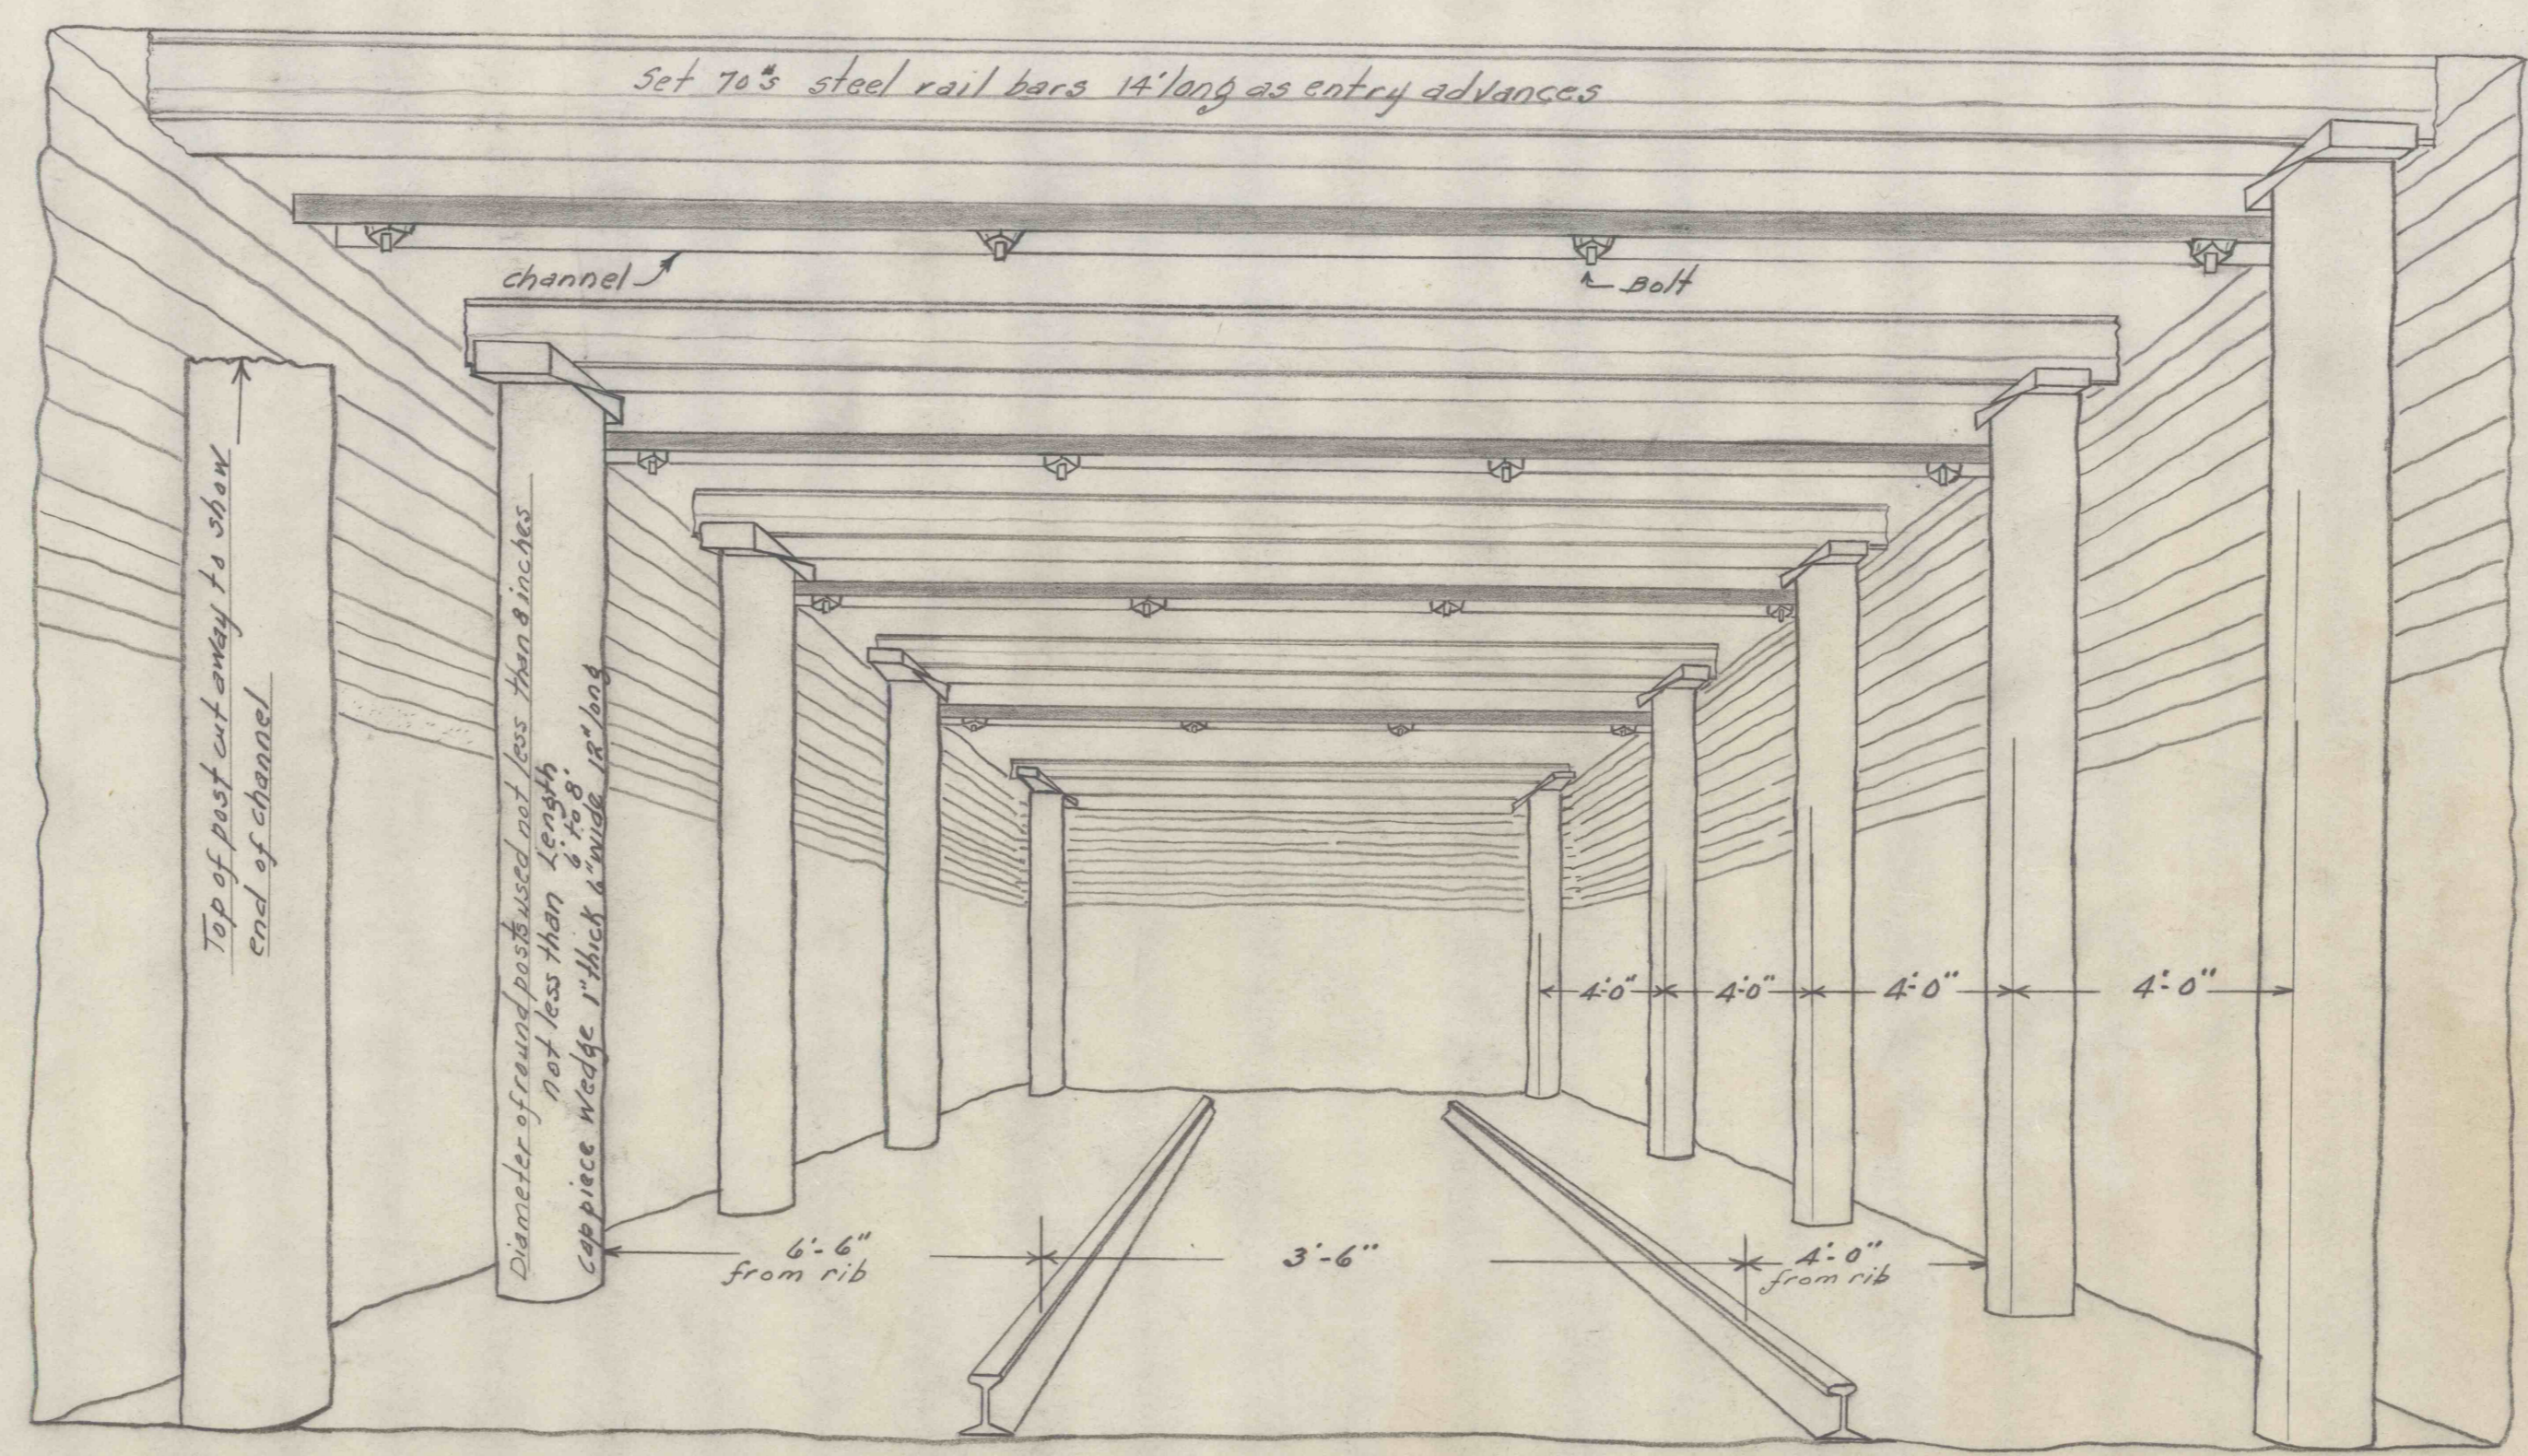 Set 70#s steel rail bars 14' long as entry advances
channel
Bolt
Top of post cut away to show
end of channel
Diameter of round posts used not less than 8 inches
Length
not less than 6' to 8'
Cap piece wedge 1" thick 6" wide 12" long
4'-0"
4'-0"
4'-0"
4'-0"
6'-6"
from rib
3'-6"
4'-0"
from rib